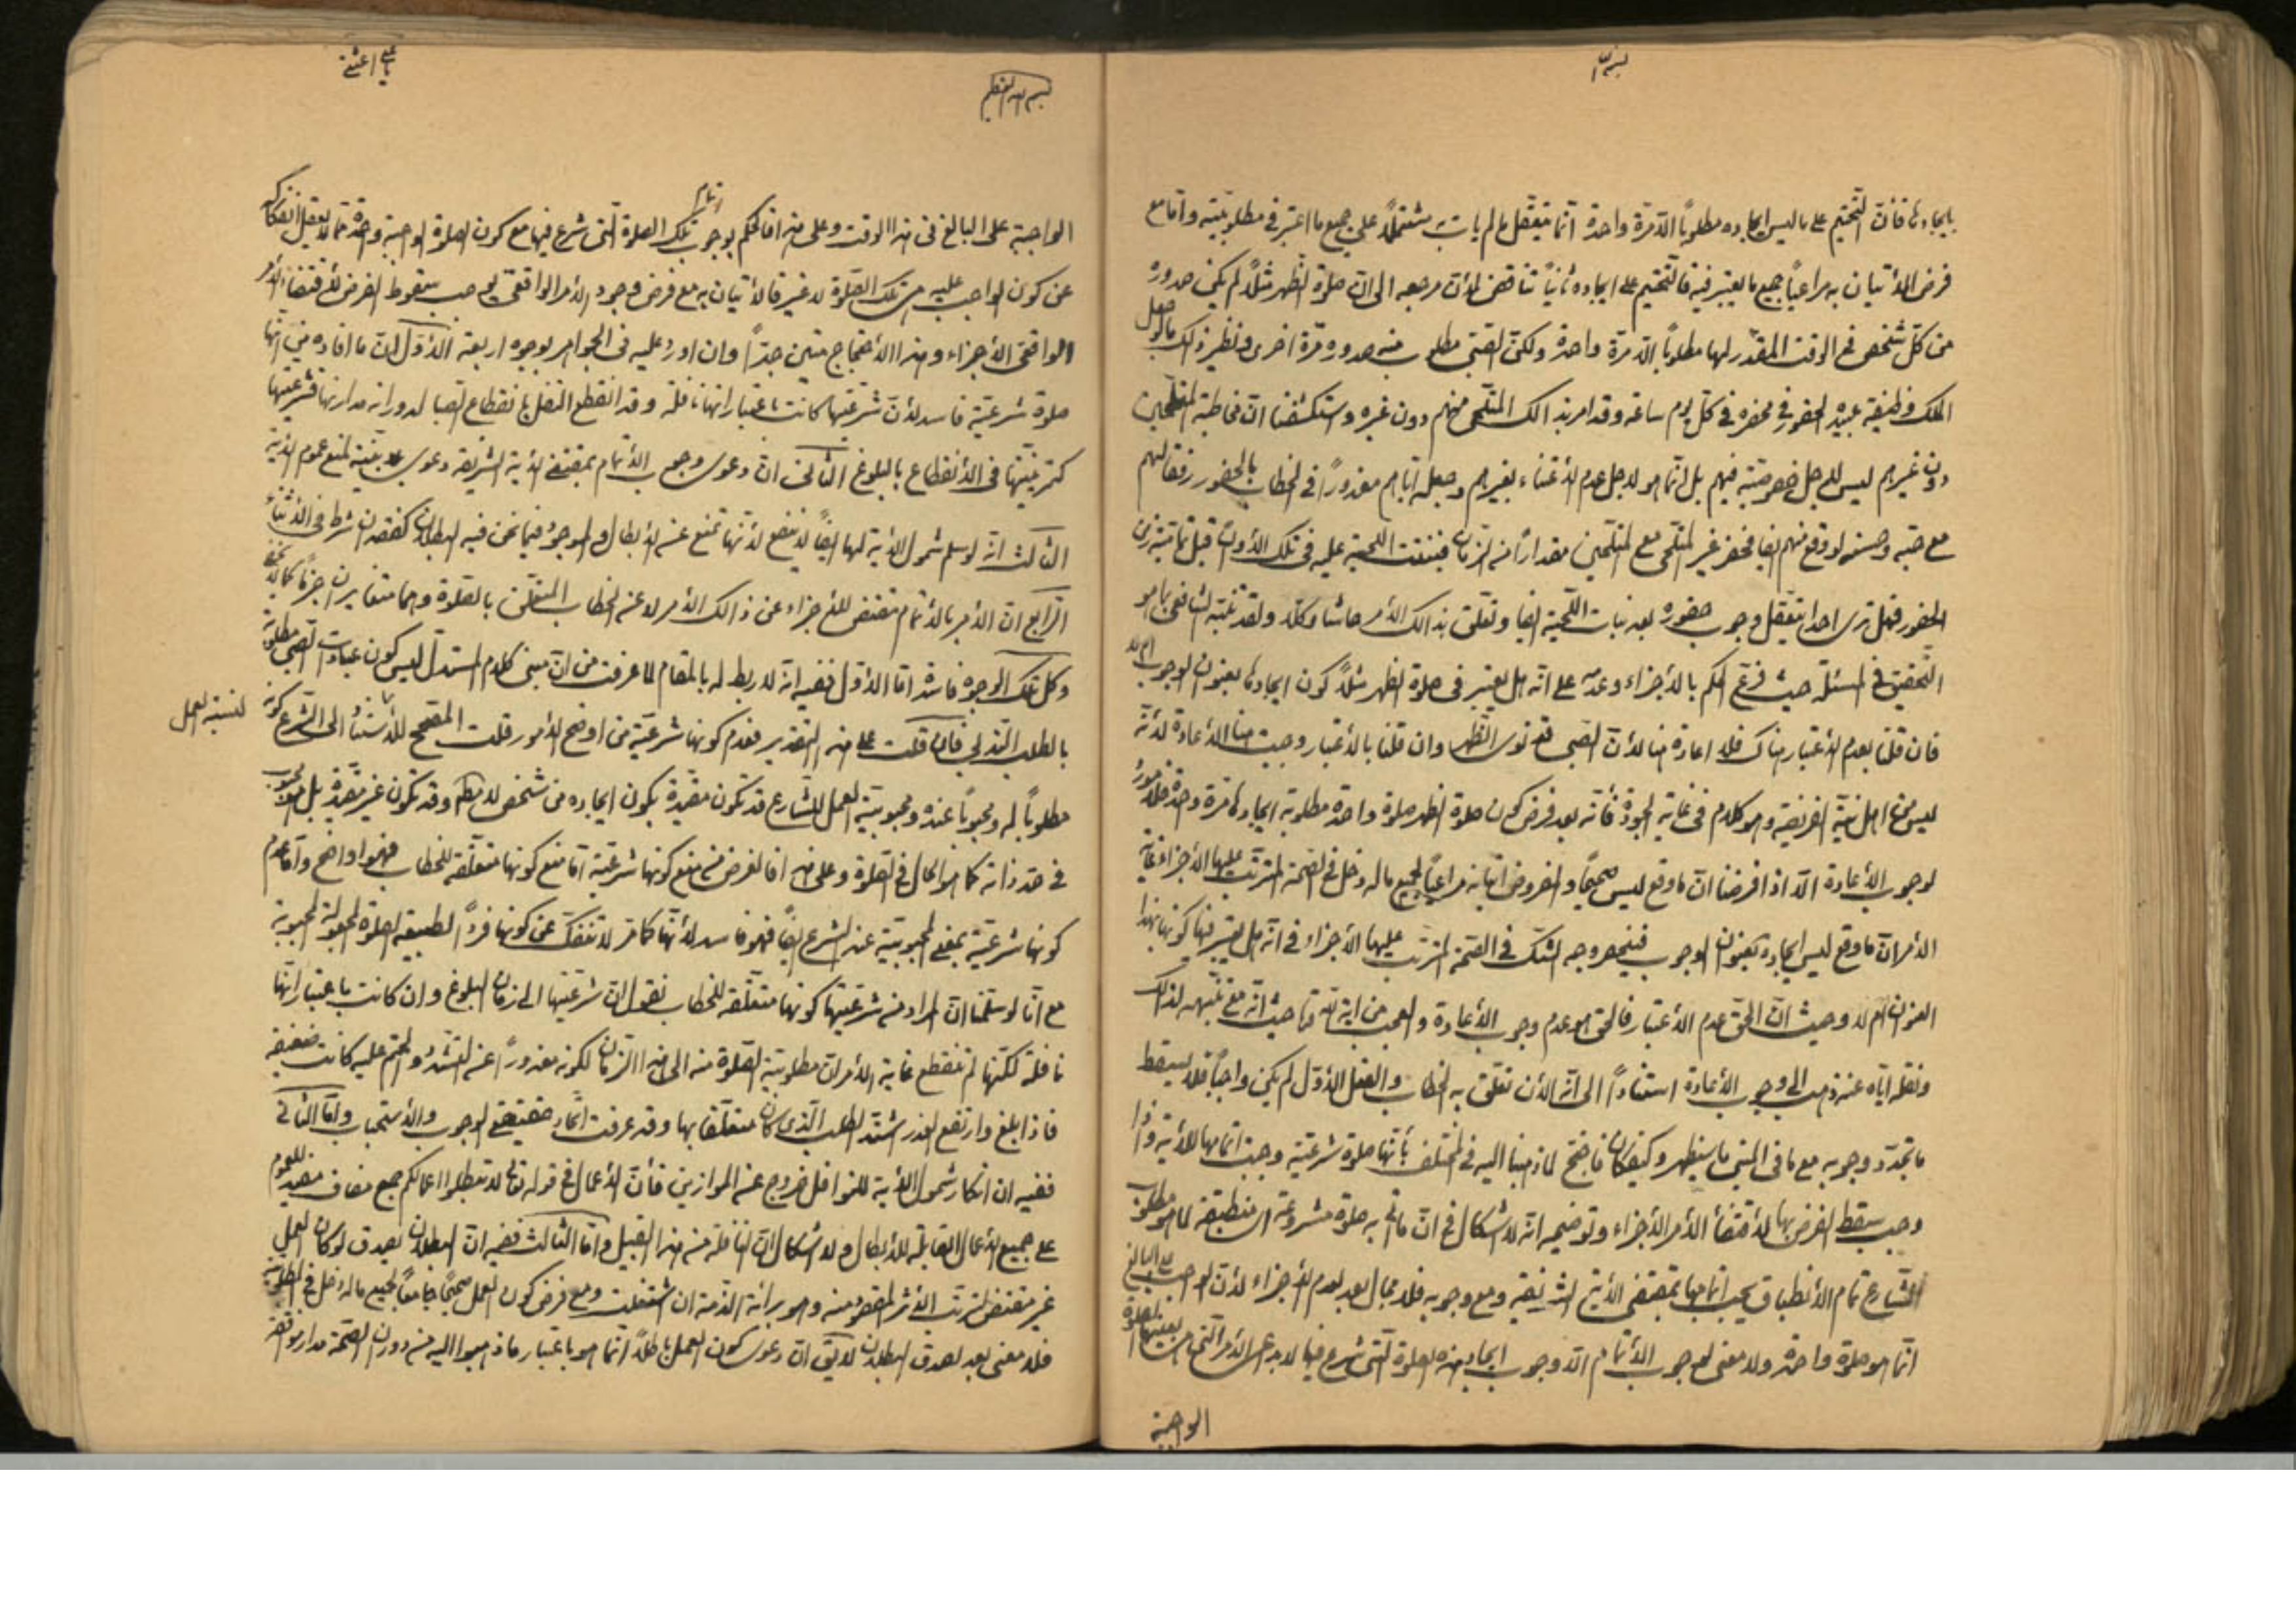 بسم الله
بايجادها فأن التحتيم على ما ليس ايجاده مطلوباً الا مرة واحدة انما يتعقل ما لم يات به مشتملاً على جميع ما اعتبر في مطلوبيته واما مع
فرض الأتيان به مراعياً جميع ما يعتبر فيه فالتحتيم على ايجاده ثانياً تناقض لأن مرجعه الى ان صلوة الظهر مثلاً لم يكن صدوره
من كل شخص في الوقت المقدر لها مطلوباً الا مرة واحدة ولكن الصبي مطلوب منه صدوره مرة اخرى ونظير ذلك ما لو جعل
الملك وظيفة عبيده الحضور في محضره في كل يوم ساعة وقد امر بذالك الملتحى منهم دون غيره واستكشفنا ان مخاطبة الملتحين
دون غيرهم ليس لأجل خصوصية فيهم بل انما هو لاجل عدم الأعتناء بغيرهم وجعله اياهم معذوراً في الخطاب بالحضور رفقا لهم
مع حبه وحسنه لو وقع منهم ايضا فحضر غير الملتحى مع الملتحين مقداراً من الزمان فنبتت اللحية عليه في تلك الأوان قبل تمامية زمن
الحضور فهل ترى احدا يتعقل وجوب حضوره بعد نبات اللحية ايضا وتعلق بذالك الأمر حاشا وكلا ولقد تنبه الشافعي بما هو
التحقيق في المسئلة حيث فرع الحكم بالأجزاء وعدمه على انه هل يعتبر في صلوة الظهر مثلاً كون ايجادها بعنوان الوجوب ام لا
فان قلنا بعدم الأعتبار هناك فلا اعادة هنا لأن الصبي قد نوى الظهر وان قلنا بالأعتبار وجبت هنا الأعادة لأنه
ليس من اهل نية الفريضة وهو كلام في غاية الجودة فأنه بعد فرض كون صلوة الظهر صلوة واحدة مطلوبة ايجادها مرة واحدة فلا مورد
لوجوب الأعادة الا اذا فرضنا ان ما وقع ليس صحيحاً والمفروض اتيانه مراعياً لجميع ما له دخل في الصحة المترتب عليها الأجزاء غاية
الأمر ان ما وقع ليس ايجاده بعنوان الوجوب فينحصر وجه الشك في الصحة المترتب عليها الأجزاء في انه هل يعتبر فيها كونها بهذا
العنوان ام لا وحيث ان الحق عدم الأعتبار فالحق هو عدم وجوب الأعادة والعجب من اية الله حيث انه مع تنبهه لذالك
ونقله اياه عنه ذهب الى وجوب الأعادة استناداً الى انه الأن تعلق به الخطاب والفعل الأول لم يكن واجباً فلا يسقط
ما تجدد وجوبه مع ما في المتن ما سيظهر وكيف كان فاحتج لما ذهبنا اليه في المختلف بأنها صلوة شرعية وجب اتمامها للأية واذا
وجب سقط الفرض بها لأقتضاء الأمر الأجزاء وتوضيحه انه لا اشكال في ان ما اتى به صلوة مشروعة اى منطبقة لما هو مطلوب
الشارع تمام الأنطباق يجب اتمامها بمقتضى الأية الشريفة ومع وجوبه فلا مجال بعد لعدم الأجزاء لأن الواجب على البالغ
انما هو صلوة واحدة ولا معنى لوجوب الأتمام الا وجوب ايجاد هذه الصلوة التي شرع فيها
الواجبة
بسم الله العظيم
يا على اغثنى
الواجبة على البالغ في هذا الوقت وعلى هذا فالحكم بوجوب اتمام تلك الصلوة التي شرع فيها مع كون الصلوة الواجبة واحدة مما لا يعقل انفكاكه
عن كون الواجب عليه هي تلك الصلوة لا غير فالأتيان به مع فرض وجود الأمر الواقعي يوجب سقوط الفرض لأقتضاء الأمر
الواقعي الأجزاء وهذا الأحتجاج متين جداً وان اورد عليه في الجواهر بوجوه اربعة الأول ان ما افاده من انها
صلوة شرعية فاسد لأن شرعيتها كانت باعتبار انها نافلة وقد انقطع النفل بانقطاع الصبا لدورانه مدارها فشرعيتها
كتمرينيتها في الأنقطاع بالبلوغ الثاني ان دعوى وجوب الأتمام بمقتضى الأية الشريفة دعوى غير بينة لمنع عموم الأية
الثالث انه لو سلم شمول الأية لها ايضاً لا ينفع لأنها تمنع عن الأبطال والموجود فيما نحن فيه البطلان كفقدان شرط في الأثناء
الرابع ان الأمر بالأتمام مقتض للأجزاء عن ذالك الأمر لا عن الخطاب المتعلق بالصلوة وهما متغايران جزماً كما لا يخفى
وكل تلك الوجوه فاسدة اما الأول ففيه انه لا ربط له بالمقام لما عرفت من ان مبنى كلام المستدل ليس كون عبادات الصبي مطلوبة
بالطلب الندبي فان قلت على هذا التقدير فعدم كونها شرعية من اوضح الأمور قلت المصحح للأستناد الى الشرع كونه
لنسبة العمل
مطلوباً له ومحبوباً عنده ومحبوبية العمل للشارع قد تكون مقيدة بكون ايجاده من شخص لا مطلقا وقد تكون غير مقيدة بل هو محبوب
في حد ذاته كما هو الحال في الصلوة وعلى هذا فالغرض من منع كونها شرعية اما منع كونها متعلقة للخطاب فهو واضح واما عدم
كونها شرعية بمعنى المحبوبية عند الشرع ايضاً فهو فاسد لأنها كما مر لا تنفك عن كونها فرداً لطبيعة الصلوة المجعولة المحبوبة
مع انا لو سلمنا ان المراد من شرعيتها كونها متعلقة للخطاب نقول ان شرعيتها الى زمان البلوغ وان كانت باعتبار انها
نافلة لكنها لم تنقطع غاية الأمر ان مطلوبية الصلوة منه الى هذا الزمان لكونه معذوراً عن التشدد والحتم عليه كانت ضعيفة
فاذا بلغ وارتفع العذر اشتد الطلب الذي كان متعلقا بها وقد عرفت اتحاد حقيقتي الوجوب والأستحباب واما الثاني
ففيه ان انكار شمول الأية للنوافل خروج عن الموازين فأن الأعمال في قوله تعالى لا تبطلوا اعمالكم جمع مضاف مفيد للعموم
على جميع الأعمال القابلة للأبطال ولا اشكال ان النافلة من هذا القبيل واما الثالث ففيه ان البطلان يصدق لو كان العمل
غير مقتض لترتب الأثر المقصود منه وهو برائة الذمة ان اشتغلت ومع فرض كون العمل صحيحاً جامعاً لجميع ما له دخل في المطلوبية
فلا معنى بعد لصدق البطلان لا يق ان دعوى كون العمل باطلاً انما هو باعتبار ما ذهبوا اليه من دوران الصحة مدار موافقة